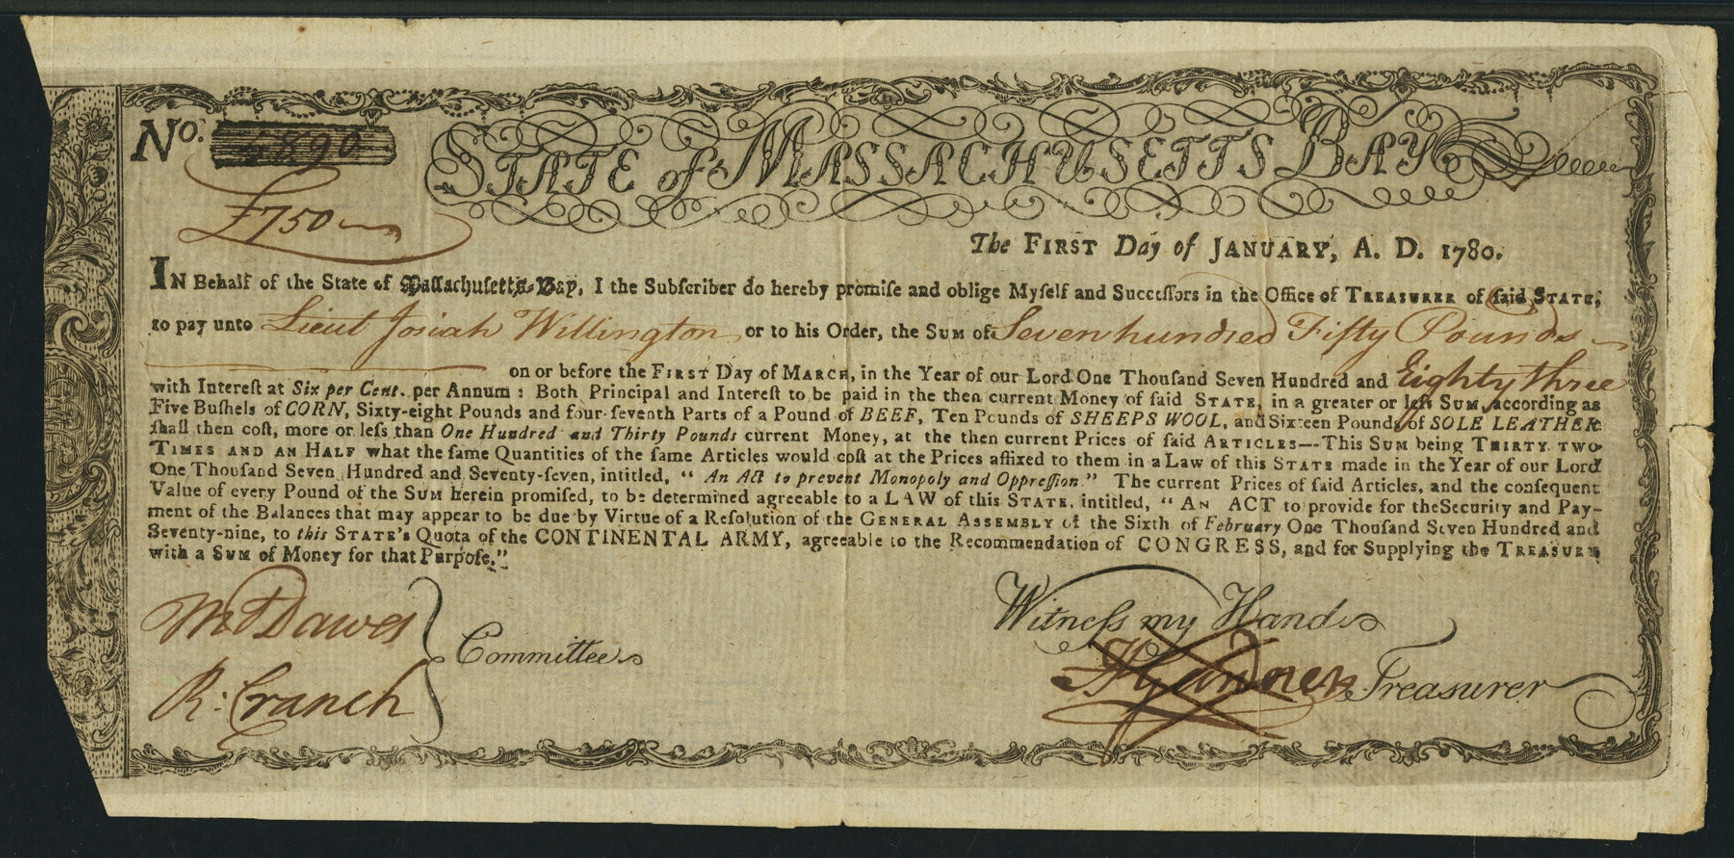 No. 4890
STATE of MASSACHUSETTS BAY
£750
The FIRST Day of JANUARY, A. D. 1780.
IN Behalf of the State of Maſſachuſetts-Bay, I the Subſcriber do hereby promiſe and oblige Myſelf and Succeſſors in the Office of TREASURER of ſaid STATE,
to pay unto Lieut Josiah Willington or to his Order, the SUM of Seven hundred Fifty Pounds
on or before the FIRST Day of MARCH, in the Year of our Lord One Thouſand Seven Hundred and Eighty three
with Intereſt at Six per Cent. per Annum : Both Principal and Intereſt to be paid in the then current Money of ſaid STATE, in a greater or leſs SUM, according as
Five Buſhels of CORN, Sixty-eight Pounds and four-ſeventh Parts of a Pound of BEEF, Ten Pounds of SHEEPS WOOL, and Sixteen Pounds of SOLE LEATHER
ſhall then coſt, more or leſs than One Hundred and Thirty Pounds current Money, at the then current Prices of ſaid ARTICLES---This SUM being THIRTY TWO
TIMES AND AN HALF what the ſame Quantities of the ſame Articles would coſt at the Prices affixed to them in a Law of this STATE made in the Year of our Lord
One Thouſand Seven Hundred and Seventy-ſeven, intitled, “ An Act to prevent Monopoly and Oppreſſion.” The current Prices of ſaid Articles, and the conſequent
Value of every Pound of the SUM herein promiſed, to be determined agreeable to a LAW of this STATE, intitled, “ AN ACT to provide for the Security and Pay-
ment of the Balances that may appear to be due by Virtue of a Reſolution of the GENERAL ASSEMBLY of the Sixth of February One Thouſand Seven Hundred and
Seventy-nine, to this STATE's Quota of the CONTINENTAL ARMY, agreeable to the Recommendation of CONGRESS, and for Supplying the TREASURY
with a SUM of Money for that Purpoſe.”
Witneſs my Hand
Dawes
Committee
R: Cranch
H Gardner Treasurer